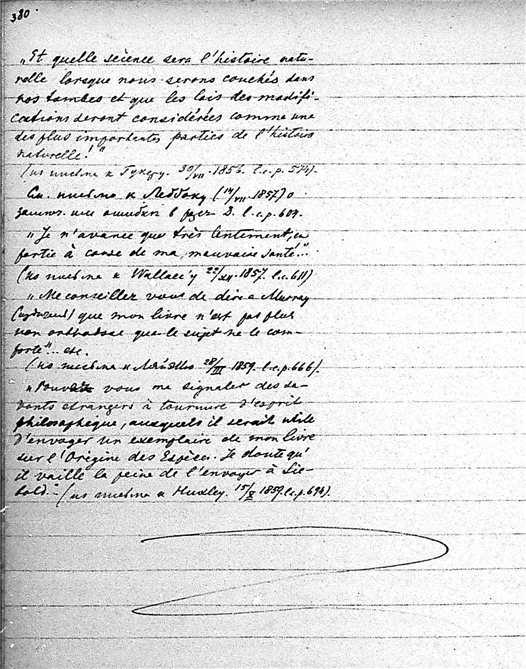 380.
„Et quelle science sera l'histoire natu-
relle lorsque nous serons couchés dans
nos tombes et que les lois des modifi-
cations seront considérées comme une
des plus importantes parties de l'histoire
naturelle!"
(из письма к Гукеру. 30/VII 1856. l.c.p. 574).
См. письмо к Леббоку (14/VII 1857) о
l.c.p. 604.
„Je n'avance que très lentement, en
partie à cause de ma mauvaise santé..."
(из письма к Wallace'у 22/XII 1857. l.c. 611)
„Me conseillez vous de dire a Murray
(издателю) que mon livre n'est pas plus
non orthodoxe que le sujet ne le com-
porte"... etc.
(из письма к Ляйэллю 28/III 1859. l.c.p. 666).
„Pouvez vous me signaler des sa-
vants etrangers à tournure d'esprit
philosophique, auxquels il serait utile
d'envoyer un exemplaire de mon livre
sur l'Origine des Espèces. Je doute qu'
il vaille la peine de l'envoyer à Sie-
bold." (из письма к Huxley. 15/X 1859 l.c.p. 694).